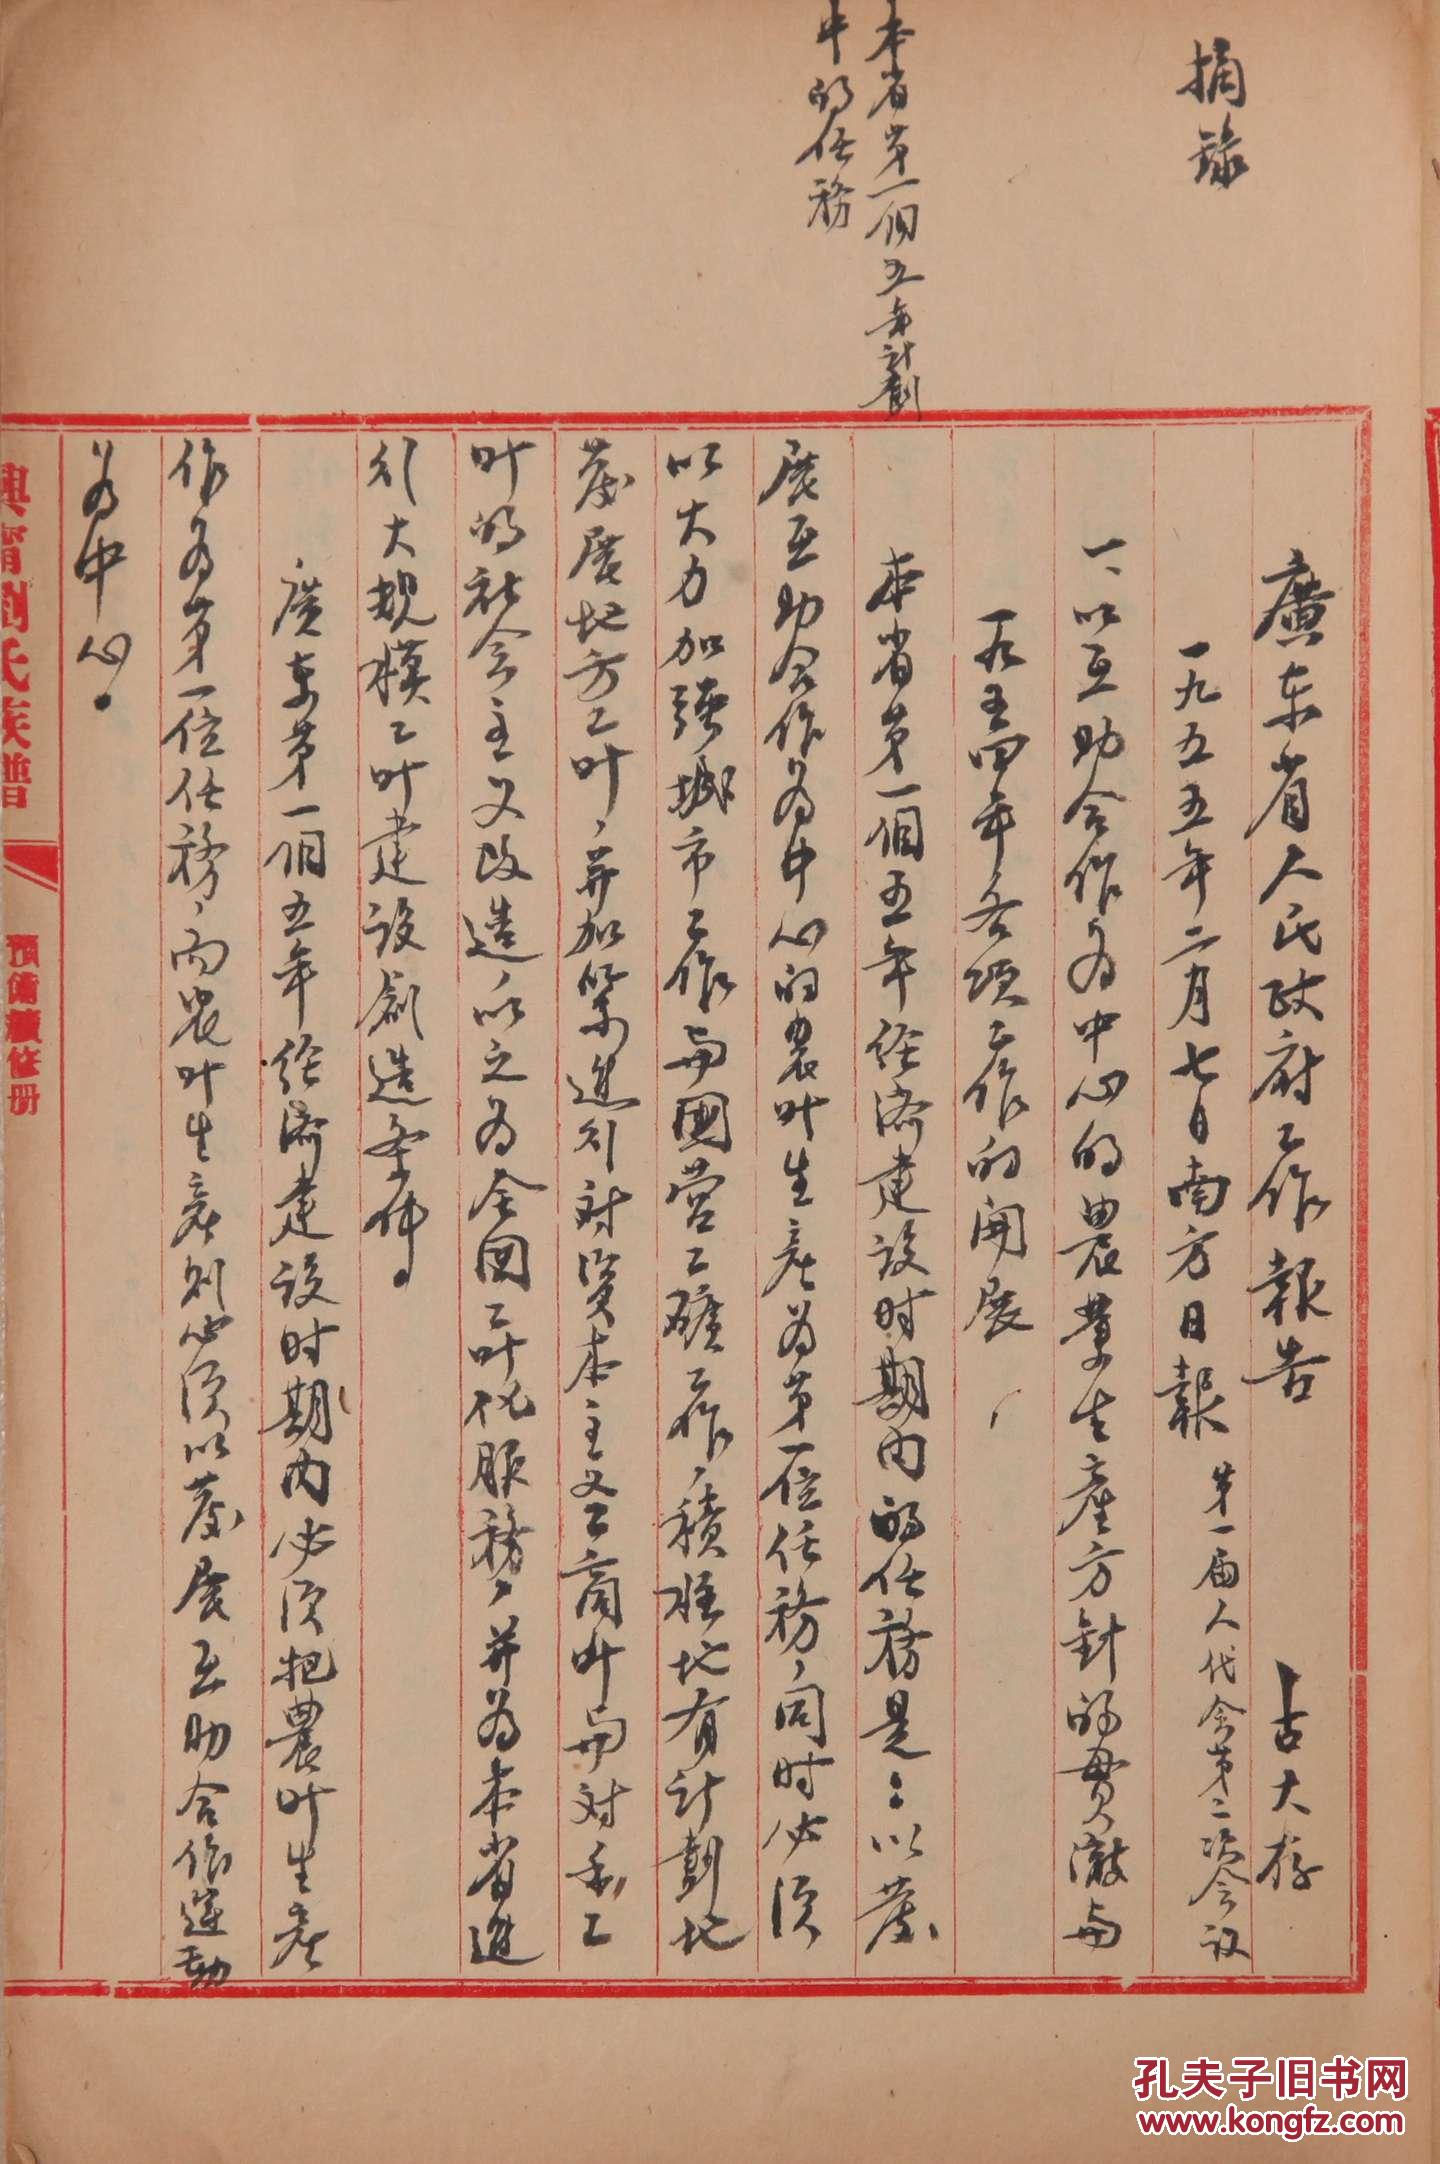 摘録
本省第一個五年計劃
中的任務
廣东省人民政府工作報告　古大存
一九五五年二月七日南方日報　第一届人代会第二次会议
一、以互助合作为中心的農業生產方針的贯澈与
一九五四年各项工作的開展
本省第一個五年经济建设时期内的任務是：以發
展互助合作为中心的农叶生產为第一位任務，同时必须
以大力加强城市工作与國营工矿工作，積極地有计劃地
發展地方工叶，并加紧進行对資本主义工商叶与对私工
叶的社会主义改造，以之为全国工叶化服務，并为本省進
行大規模工叶建设創造条件。
廣东第一個五年经济建设时期内必须把農叶生產
作为第一位任務，而农叶生產则必须以發展互助合作運动
为中心。
興甯劉氏族譜
預備續修册
孔夫子旧书网
www.kongfz.com